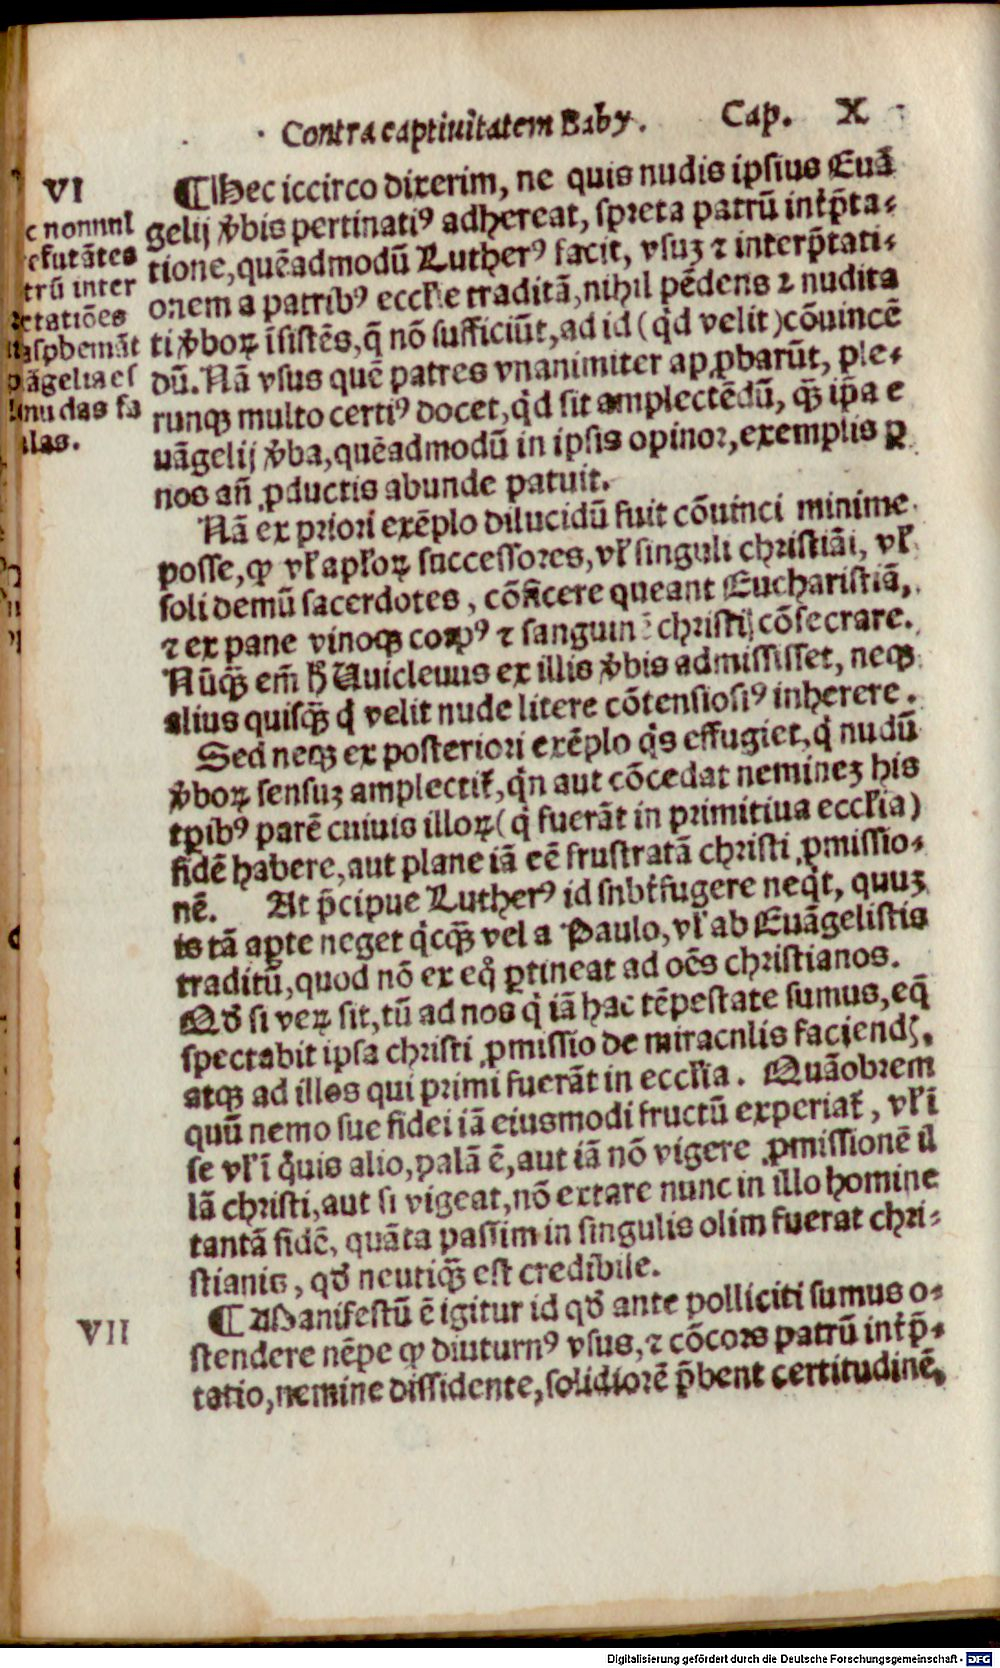 Contra captiuitatem Baby. Cap. X
VI
c nonnnl
efutãtes
trũ inter
etatiões
aspbemãt
ãgelia es
nudas fa
las.
¶Hec iccirco dixerim, ne quis nudis ipsius Euã
gelij v̾bis pertinatiꝰ adhereat, spreta patrũ int̾p̃ta⸗
tione, quẽadmodũ Lutherꝰ facit, vsuʒ ⁊ interp̃tati⸗
onem a patribꝰ eccłie traditã, nihil pẽdens ⁊ nudita
ti v̾boꝝ ĩsistẽs, q̃ nõ sufficiũt, ad id (qd velit) cõuincẽ
dũ. Nã vsus quẽ patres vnanimiter apꝓbarũt, ple⸗
runqꝫ multo certiꝰ docet, qd sit amplectẽdũ, qꝫ̃ ip̃a e
uãgelij v̾ba, quẽadmodũ in ipsis opinor, exemplis ꝑ
nos añ ꝓductis abunde patuit.
Nã ex priori exẽplo dilucidũ fuit cõuinci minime
posse, ꝙ vł apłoꝝ successores, vł singuli christiãi, vł
soli demũ sacerdotes, cõficere queant Eucharistiã,
⁊ ex pane vinoqꝫ corpꝰ ⁊ sanguinẽ christi cõsecrare.
Nũqꝫ̃ em̃ ħ Vuicleuus ex illis v̾bis admisisset, neqꝫ
alius quisqꝫ̃ q̇ velit nude litere cõtensiosiꝰ inherere.
Sed neqꝫ ex posteriori exẽplo q̇s effugiet, q̇ nudũ
v̾boꝝ sensuʒ amplectit̃, q̇n aut cõcedat nemineʒ his
tꝑibꝰ parẽ cuiuis illoꝝ (q̇ fuerãt in primitiua eccłia)
fidẽ habere, aut plane iã eẽ frustratã christi ꝓmissio⸗
nẽ. At p̃cipue Lutherꝰ id snbt̾fugere neq̇t, quuʒ
is tã aꝑte neget q̇cqꝫ̃ vel a Paulo, vł ab Euãgelistis
traditũ, quod nõ ex eq̊ ꝑtineat ad oẽs christianos.
Qđ si veꝝ sit, tũ ad nos q̇ iã hac tẽpestate sumus, eq̃
spectabit ipsa christi ꝓmissio de miracnlis faciendꝭ,
atqꝫ ad illos qui primi fuerãt in eccłia. Quãobrem
quũ nemo sue fidei iã eiusmodi fructũ experiat̃, vł ĩ
se vł ĩ q̇uis alio, palã ẽ, aut iã nõ vigere ꝓmissionẽ il
lã christi, aut si vigeat, nõ extare nunc in illo homine
tantã fidẽ, quãta passim in singulis olim fuerat chri⸗
stianis, qđ neutiqꝫ̃ est credibile.
VII
¶Manifestũ ẽ igitur id qđ ante polliciti sumus o⸗
stendere nẽpe ꝙ diuturnꝰ vsus, ⁊ cõcors patrũ int̾p̃⸗
tatio, nemine dissidente, solidiorẽ p̃bent certitudinẽ,
Digitalisierung gefördert durch die Deutsche Forschungsgemeinschaft - DFG